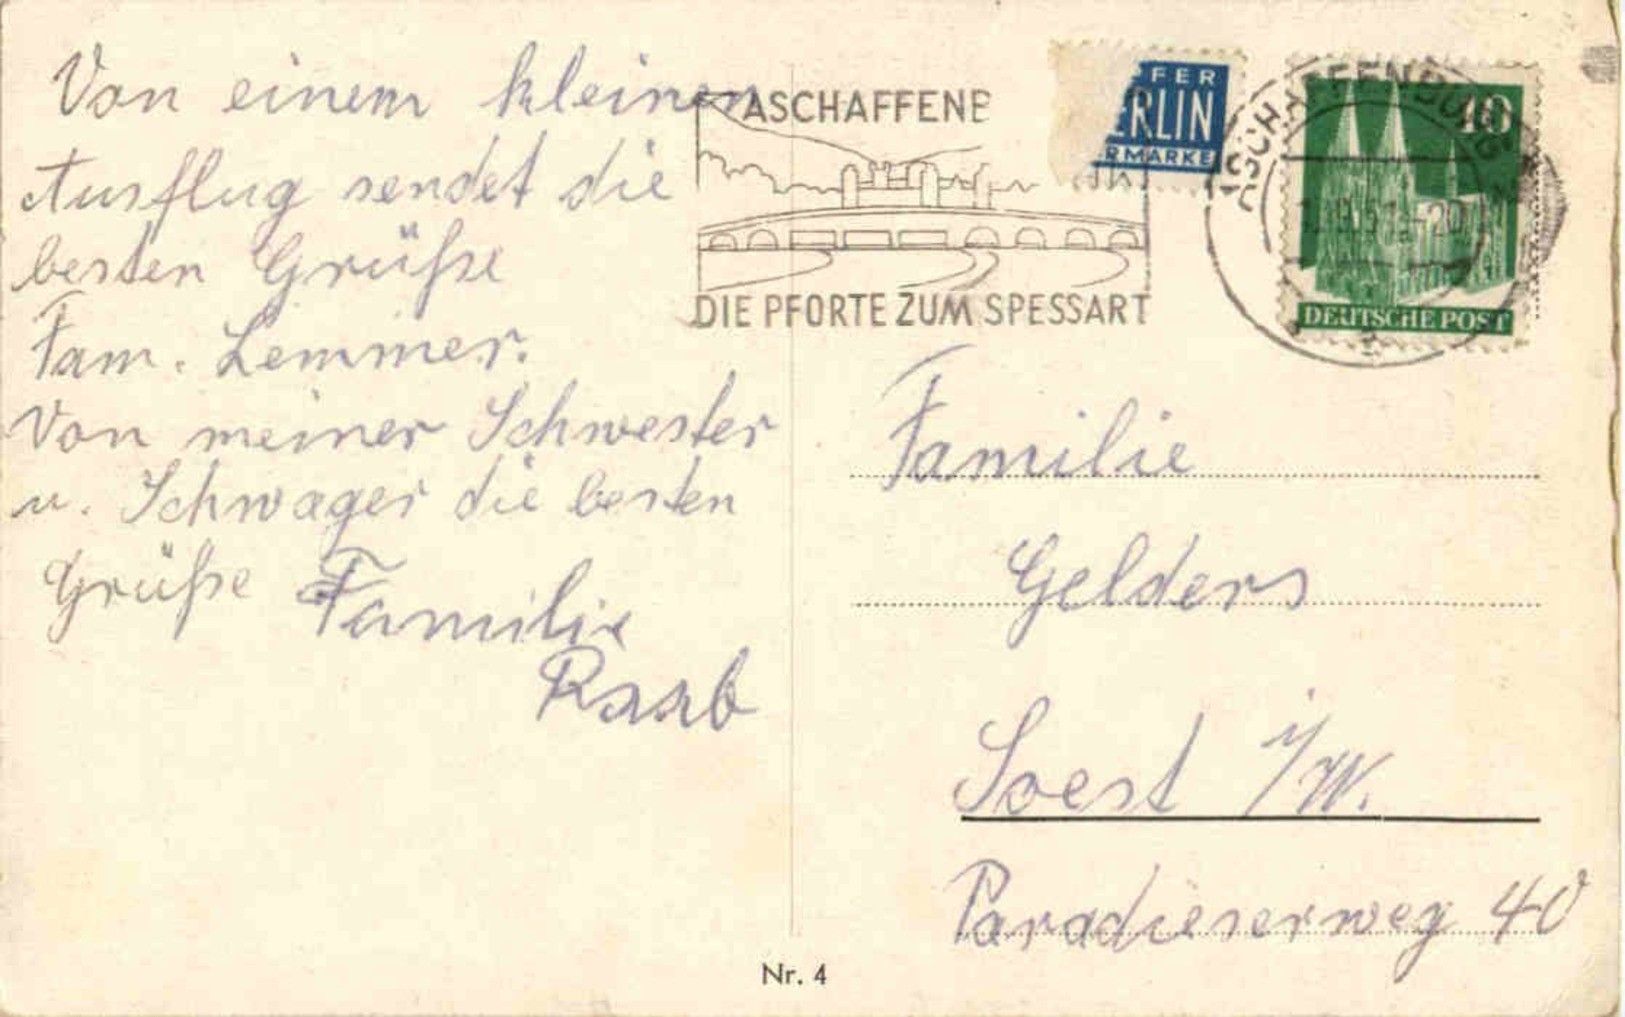 Von einem kleinen
Ausflug sendet die
besten Grüße
Fam. Lemmer.
Von meiner Schwester
u. Schwager die besten
Grüße Familie
Raab
ASCHAFFENB
DIE PFORTE ZUM SPESSART
FER
ERLIN
RMARKE
ASCHAFFENBURG
10
DEUTSCHE POST
Familie
Gelders
Soest i/W.
Paradieserweg 40
Nr. 4